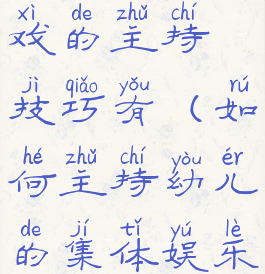 xì de zhǔ chí
戏的主持
jì qiǎo yǒu rú
技巧有（如
hé zhǔ chí yòu ér
何主持幼儿
de jí tǐ yú lè
的集体娱乐